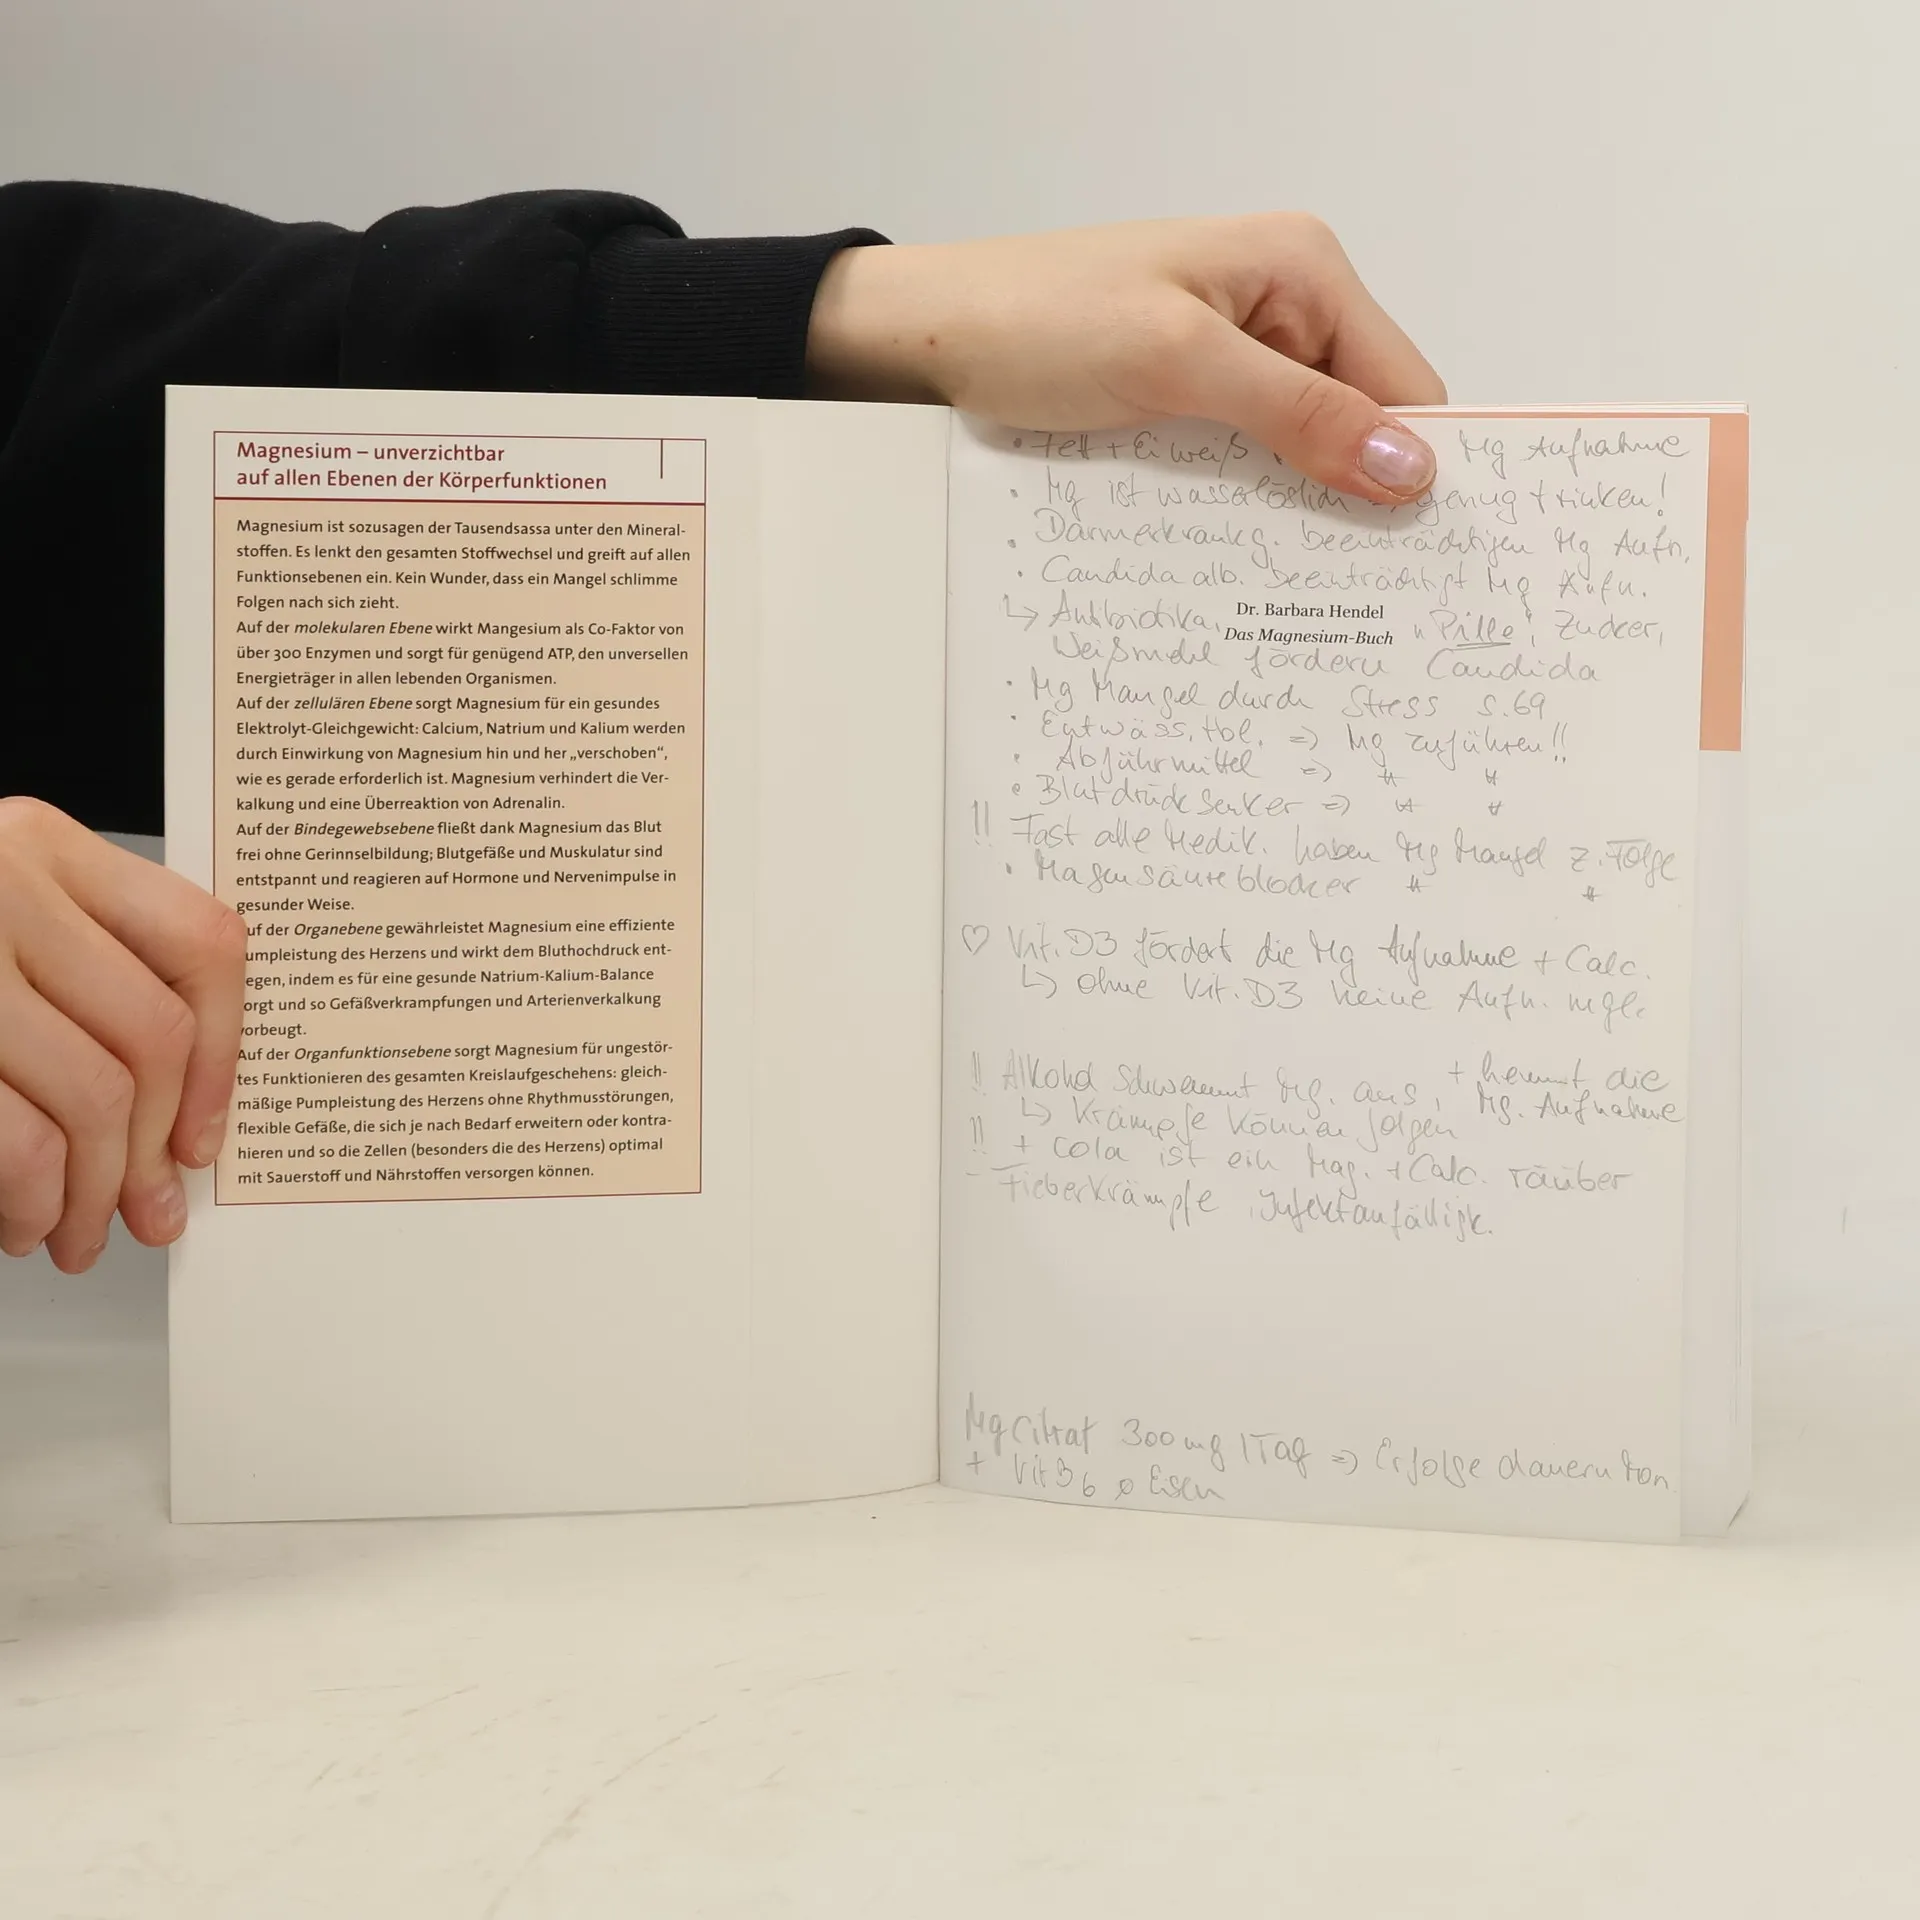 Magnesium – unverzichtbar
auf allen Ebenen der Körperfunktionen
Magnesium ist sozusagen der Tausendsassa unter den Mineral-
stoffen. Es lenkt den gesamten Stoffwechsel und greift auf allen
Funktionsebenen ein. Kein Wunder, dass ein Mangel schlimme
Folgen nach sich zieht.
Auf der molekularen Ebene wirkt Mangesium als Co-Faktor von
über 300 Enzymen und sorgt für genügend ATP, den unversellen
Energieträger in allen lebenden Organismen.
Auf der zellulären Ebene sorgt Magnesium für ein gesundes
Elektrolyt-Gleichgewicht: Calcium, Natrium und Kalium werden
durch Einwirkung von Magnesium hin und her „verschoben“,
wie es gerade erforderlich ist. Magnesium verhindert die Ver-
kalkung und eine Überreaktion von Adrenalin.
Auf der Bindegewebsebene fließt dank Magnesium das Blut
frei ohne Gerinnselbildung; Blutgefäße und Muskulatur sind
entspannt und reagieren auf Hormone und Nervenimpulse in
gesunder Weise.
uf der Organebene gewährleistet Magnesium eine effiziente
umpleistung des Herzens und wirkt dem Bluthochdruck ent-
egen, indem es für eine gesunde Natrium-Kalium-Balance
orgt und so Gefäßverkrampfungen und Arterienverkalkung
vorbeugt.
Auf der Organfunktionsebene sorgt Magnesium für ungestör-
tes Funktionieren des gesamten Kreislaufgeschehens: gleich-
mäßige Pumpleistung des Herzens ohne Rhythmusstörungen,
flexible Gefäße, die sich je nach Bedarf erweitern oder kontra-
hieren und so die Zellen (besonders die des Herzens) optimal
mit Sauerstoff und Nährstoffen versorgen können.
• Fett + Eiweiß Mg Aufnahme
• Mg ist wasserlöslich genug trinken!
• Darmerkrankg. beeinträchtigen Mg Aufn.
• Candida alb. beeinträchtigt Mg Aufn.
Dr. Barbara Hendel
↳ Antibiotika, "Pille", Zucker,
Das Magnesium-Buch
Weißmehl fördern Candida
• Mg Mangel durch Stress S.69
• Entwäss. tbl. => Mg zuführen!!
• Abführmittel => " "
• Blutdrucksenker => " "
!! Fast alle Medik. haben Mg Mangel z. Folge
• Magensäureblocker " "
♡ Vit. D3 fördert die Mg Aufnahme + Calc.
↳ ohne Vit. D3 keine Aufn. mgl.
!! Alkohol schwemmt Mg. aus, + hemmt die
Mg. Aufnahme
↳ Krämpfe können folgen
!! + Cola ist ein Mag. + Calc. räuber
- Fieberkrämpfe, Infektanfälligk.
Mg Citrat 300 mg / Tag => Erfolge dauern
+ Vit B6 Eisen